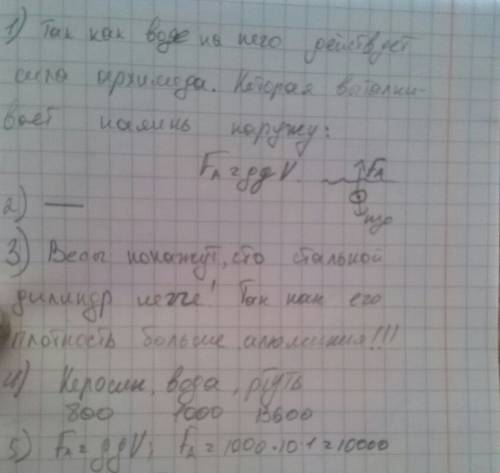 1) Так как воде на него действует
сила архимеда. Которая выталки-
вает камень наружу:
Fₐ = ρgV. Fₐ
mg
2) —
3) Весы покажут, что стальной
цилиндр легче! Так как его
плотность больше алюминия!!!
4) Керосин, вода, ртуть
800 1000 13600
5) Fₐ = ρgV; Fₐ = 1000·10·1 = 10000